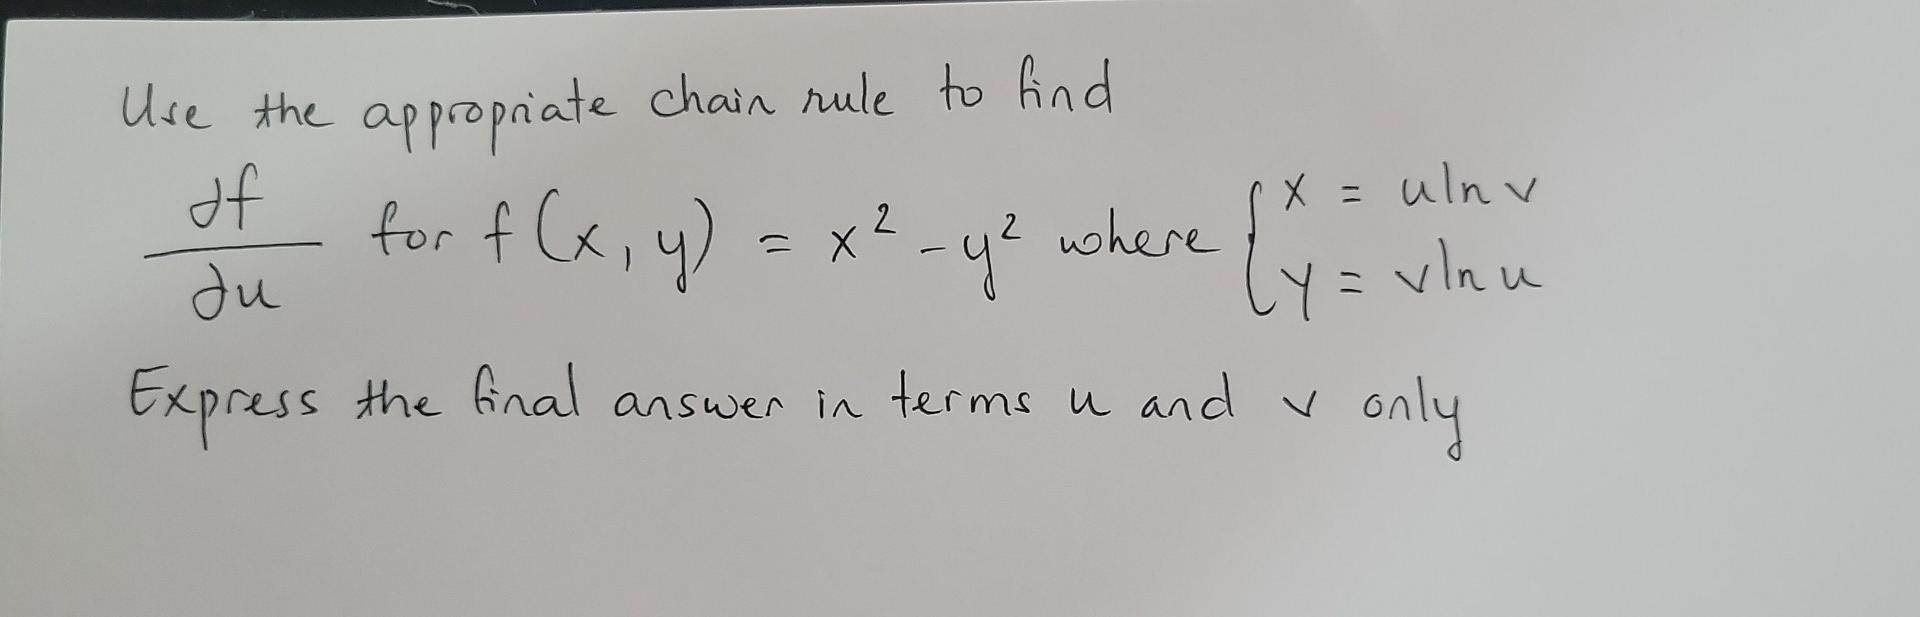 Use the appropriate chain rule to find
∂f/∂u for f(x, y) = x² - y² where { x = u ln v
y = v ln u
Express the final answer in terms u and v only